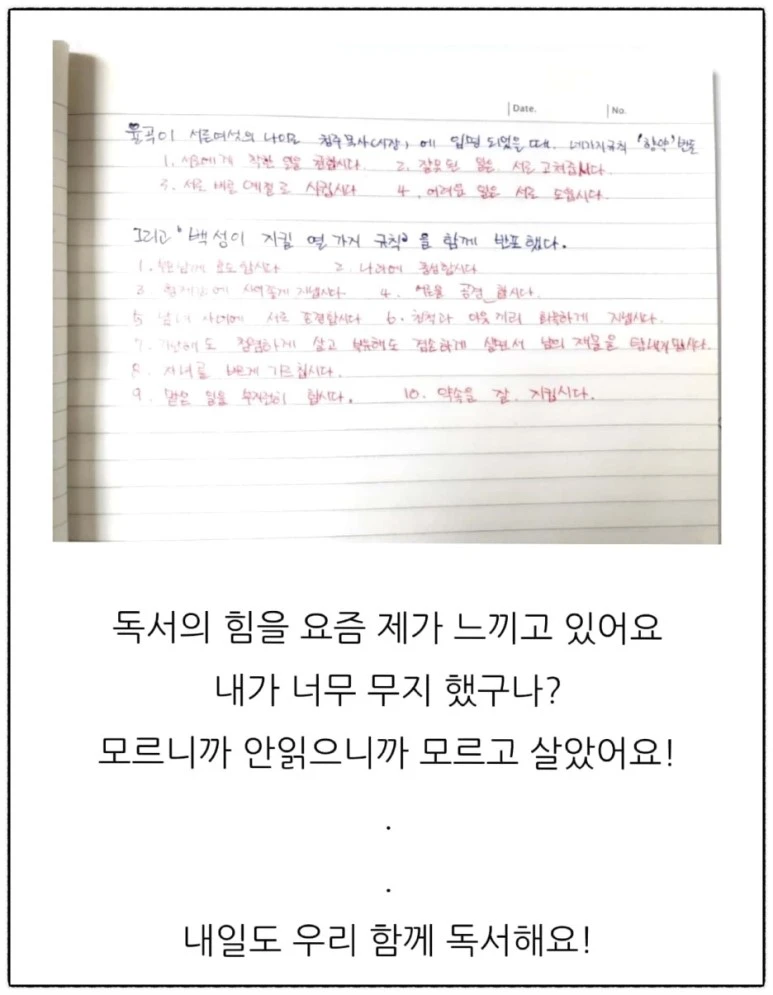 Date. No.
율곡이 서른여섯의 나이로 청주목사(시장)에 임명 되었을 때. 네가지규칙 '향약'반포
1. 서로에게 착한 일을 권합시다. 2. 잘못된 일은 서로 고쳐줍시다.
3. 서로 바른 예절로 사귑시다 4. 어려운 일은 서로 도웁시다.
그리고 '백성이 지킬 열 가지 규칙'을 함께 반포했다.
1. 부모님께 효도합시다 2. 나라에 충성합시다
3. 형제간에 사이좋게 지냅시다 4. 어른을 공경 합시다.
5 남녀 사이에 서로 존경합시다 6. 친척과 이웃끼리 화목하게 지냅시다.
7. 가난해도 청렴하게 살고 부유해도 겸손하게 살면서 남의 재물을 탐내지맙시다.
8. 자녀를 바르게 가르칩시다.
9. 맡은 일을 부지런히 합시다. 10. 약속을 잘 지킵시다.
독서의 힘을 요즘 제가 느끼고 있어요
내가 너무 무지 했구나?
모르니까 안읽으니까 모르고 살았어요!
.
.
내일도 우리 함께 독서해요!